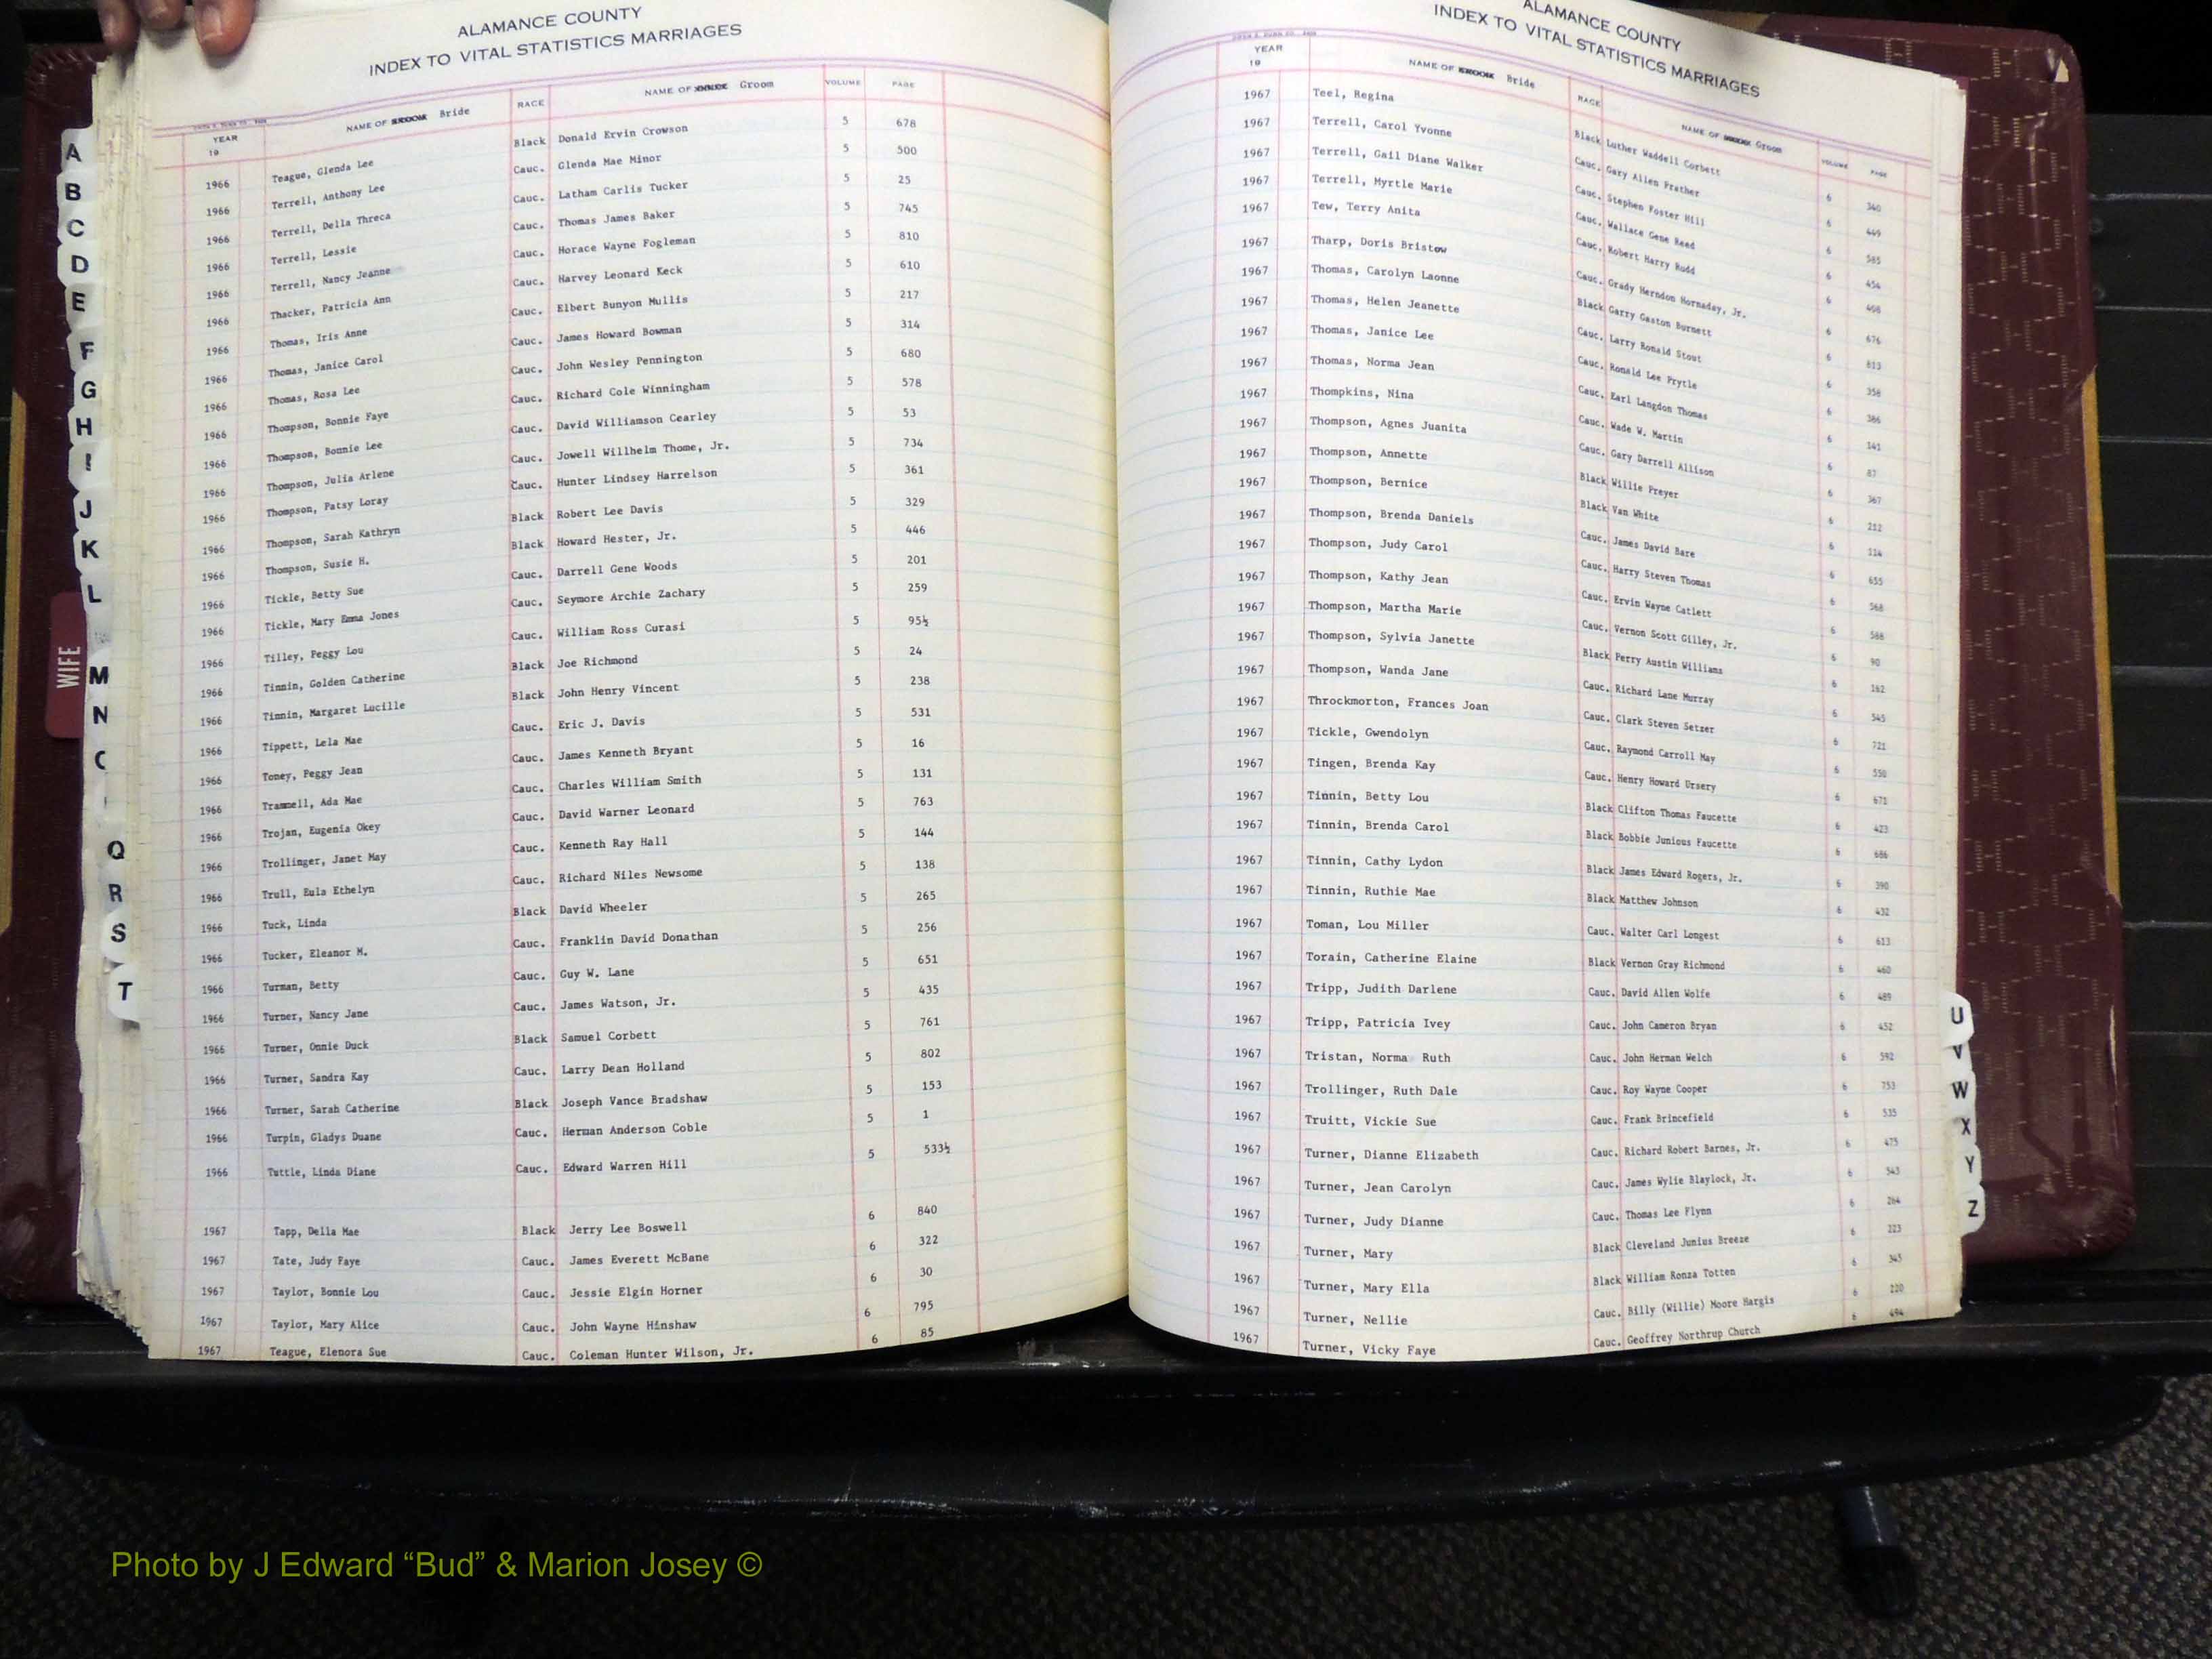 ALAMANCE COUNTY
INDEX TO VITAL STATISTICS MARRIAGES
YEAR 19 NAME OF Bride RACE NAME OF Groom VOLUME PAGE
1966 Teague, Glenda Lee Black Donald Ervin Crowson 5 678
1966 Terrell, Anthony Lee Cauc. Glenda Mae Minor 5 500
1966 Terrell, Della Threca Cauc. Latham Carlis Tucker 5 25
1966 Terrell, Lessie Cauc. Thomas James Baker 5 745
1966 Terrell, Nancy Jeanne Cauc. Horace Wayne Fogleman 5 810
1966 Thacker, Patricia Ann Cauc. Harvey Leonard Keck 5 610
1966 Thomas, Iris Anne Cauc. Elbert Bunyon Mullis 5 217
1966 Thomas, Janice Carol Cauc. James Howard Bowman 5 314
1966 Thomas, Rosa Lee Cauc. John Wesley Pennington 5 680
1966 Thompson, Bonnie Faye Cauc. Richard Cole Winningham 5 578
1966 Thompson, Bonnie Lee Cauc. David Williamson Cearley 5 53
1966 Thompson, Julia Arlene Cauc. Jowell Willhelm Thome, Jr. 5 734
1966 Thompson, Patsy Loray Cauc. Hunter Lindsey Harrelson 5 361
1966 Thompson, Sarah Kathryn Black Robert Lee Davis 5 329
1966 Thompson, Susie H. Black Howard Hester, Jr. 5 446
1966 Tickle, Betty Sue Cauc. Darrell Gene Woods 5 201
1966 Tickle, Mary Emma Jones Cauc. Seymore Archie Zachary 5 259
1966 Tilley, Peggy Lou Cauc. William Ross Curasi 5 95½
1966 Tinnin, Golden Catherine Black Joe Richmond 5 24
1966 Tinnin, Margaret Lucille Black John Henry Vincent 5 238
1966 Tippett, Lela Mae Cauc. Eric J. Davis 5 531
1966 Toney, Peggy Jean Cauc. James Kenneth Bryant 5 16
1966 Trammell, Ada Mae Cauc. Charles William Smith 5 131
1966 Trojan, Eugenia Okey Cauc. David Warner Leonard 5 763
1966 Trollinger, Janet May Cauc. Kenneth Ray Hall 5 144
1966 Trull, Eula Ethelyn Cauc. Richard Niles Newsome 5 138
1966 Tuck, Linda Black David Wheeler 5 265
1966 Tucker, Eleanor M. Cauc. Franklin David Donathan 5 256
1966 Turman, Betty Cauc. Guy W. Lane 5 651
1966 Turner, Nancy Jane Cauc. James Watson, Jr. 5 435
1966 Turner, Onnie Duck Black Samuel Corbett 5 761
1966 Turner, Sandra Kay Cauc. Larry Dean Holland 5 802
1966 Turner, Sarah Catherine Black Joseph Vance Bradshaw 5 153
1966 Turpin, Gladys Duane Cauc. Herman Anderson Coble 5 1
1966 Tuttle, Linda Diane Cauc. Edward Warren Hill 5 533½
1967 Tapp, Della Mae Black Jerry Lee Boswell 6 840
1967 Tate, Judy Faye Cauc. James Everett McBane 6 322
1967 Taylor, Bonnie Lou Cauc. Jessie Elgin Horner 6 30
1967 Taylor, Mary Alice Cauc. John Wayne Hinshaw 6 795
1967 Teague, Elenora Sue Cauc. Coleman Hunter Wilson, Jr. 6 85
A
B
C
D
E
F
G
H
I
J
K
L
M
N
Q
R
S
T
WIFE
ALAMANCE COUNTY
INDEX TO VITAL STATISTICS MARRIAGES
YEAR 19 NAME OF Bride RACE NAME OF Groom VOLUME PAGE
1967 Teel, Regina Black Luther Waddell Corbett 6 340
1967 Terrell, Carol Yvonne Cauc. Gary Allen Prather 6 449
1967 Terrell, Gail Diane Walker Cauc. Stephen Foster Hill 6 585
1967 Terrell, Myrtle Marie Cauc. Wallace Gene Reed 6 454
1967 Tew, Terry Anita Cauc. Robert Harry Rudd 6 408
1967 Tharp, Doris Bristow Cauc. Grady Herndon Hornaday, Jr. 6 676
1967 Thomas, Carolyn Laonne Black Garry Gaston Burnett 6 813
1967 Thomas, Helen Jeanette Cauc. Larry Ronald Stout 6 358
1967 Thomas, Janice Lee Cauc. Ronald Lee Prytle 6 386
1967 Thomas, Norma Jean Cauc. Earl Langdon Thomas 6 141
1967 Thompkins, Nina Cauc. Wade W. Martin 6 87
1967 Thompson, Agnes Juanita Cauc. Gary Darrell Allison 6 367
1967 Thompson, Annette Black Willie Preyer 6 212
1967 Thompson, Bernice Black Van White 6 114
1967 Thompson, Brenda Daniels Cauc. James David Bare 6 655
1967 Thompson, Judy Carol Cauc. Harry Steven Thomas 6 568
1967 Thompson, Kathy Jean Cauc. Ervin Wayne Catlett 6 588
1967 Thompson, Martha Marie Cauc. Vernon Scott Gilley, Jr. 6 90
1967 Thompson, Sylvia Janette Black Perry Austin Williams 6 162
1967 Thompson, Wanda Jane Cauc. Richard Lane Murray 6 545
1967 Throckmorton, Frances Joan Cauc. Clark Steven Setzer 6 721
1967 Tickle, Gwendolyn Cauc. Raymond Carroll May 6 550
1967 Tingen, Brenda Kay Cauc. Henry Howard Ursery 6 671
1967 Tinnin, Betty Lou Black Clifton Thomas Faucette 6 423
1967 Tinnin, Brenda Carol Black Bobbie Junious Faucette 6 686
1967 Tinnin, Cathy Lydon Black James Edward Rogers, Jr. 6 390
1967 Tinnin, Ruthie Mae Black Matthew Johnson 6 432
1967 Toman, Lou Miller Cauc. Walter Carl Longest 6 613
1967 Torain, Catherine Elaine Black Vernon Gray Richmond 6 460
1967 Tripp, Judith Darlene Cauc. David Allen Wolfe 6 489
1967 Tripp, Patricia Ivey Cauc. John Cameron Bryan 6 452
1967 Tristan, Norma Ruth Cauc. John Herman Welch 6 592
1967 Trollinger, Ruth Dale Cauc. Roy Wayne Cooper 6 753
1967 Truitt, Vickie Sue Cauc. Frank Brincefield 6 535
1967 Turner, Dianne Elizabeth Cauc. Richard Robert Barnes, Jr. 6 475
1967 Turner, Jean Carolyn Cauc. James Wylie Blaylock, Jr. 6 543
1967 Turner, Judy Dianne Cauc. Thomas Lee Flynn 6 264
1967 Turner, Mary Black Cleveland Junius Breeze 6 223
1967 Turner, Mary Ella Black William Ronza Totten 6 345
1967 Turner, Nellie Cauc. Billy (Willie) Moore Hargis 6 220
1967 Turner, Vicky Faye Cauc. Geoffrey Northrup Church 6 494
U
V
W
X
Y
Z
Photo by J Edward “Bud” & Marion Josey ©